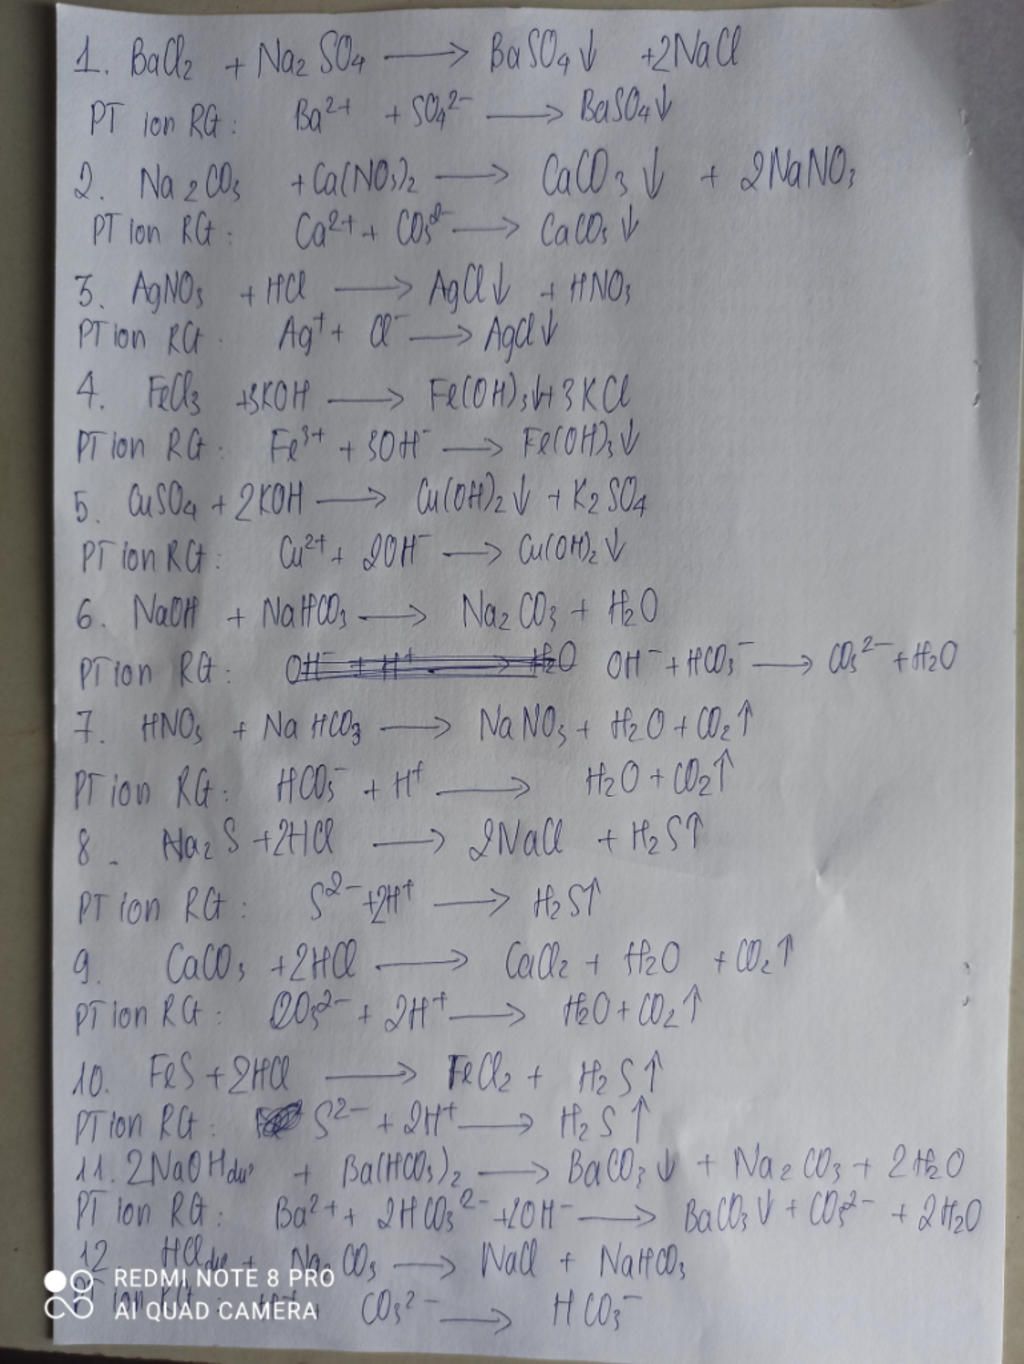 1. BaCl2 + Na2SO4 ⟶ BaSO4↓ +2NaCl
PT ion RG: Ba²⁺ + SO4²⁻ ⟶ BaSO4↓
2. Na2CO3 + Ca(NO3)2 ⟶ CaCO3↓ + 2NaNO3
PT ion RG: Ca²⁺ + CO3²⁻ ⟶ CaCO3↓
3. AgNO3 + HCl ⟶ AgCl↓ + HNO3
PT ion RG: Ag⁺ + Cl⁻ ⟶ AgCl↓
4. FeCl3 +3KOH ⟶ Fe(OH)3↓+3KCl
PT ion RG: Fe³⁺ + 3OH⁻ ⟶ Fe(OH)3↓
5. CuSO4 + 2KOH ⟶ Cu(OH)2↓ + K2SO4
PT ion RG: Cu²⁺ + 2OH⁻ ⟶ Cu(OH)2↓
6. NaOH + NaHCO3 ⟶ Na2CO3 + H2O
PT ion RG: OH⁻ + H⁺ ⟶ H2O OH⁻ + HCO3⁻ ⟶ CO3²⁻ + H2O
7. HNO3 + NaHCO3 ⟶ NaNO3 + H2O + CO2↑
PT ion RG: HCO3⁻ + H⁺ ⟶ H2O + CO2↑
8. Na2S +2HCl ⟶ 2NaCl + H2S↑
PT ion RG: S²⁻ +2H⁺ ⟶ H2S↑
9. CaCO3 +2HCl ⟶ CaCl2 + H2O + CO2↑
PT ion RG: CO3²⁻ + 2H⁺ ⟶ H2O + CO2↑
10. FeS + 2HCl ⟶ FeCl2 + H2S↑
PT ion RG: S²⁻ + 2H⁺ ⟶ H2S↑
11. 2NaOH dư + Ba(HCO3)2 ⟶ BaCO3↓ + Na2CO3 + 2H2O
PT ion RG: Ba²⁺ + 2HCO3²⁻ +2OH⁻ ⟶ BaCO3↓ + CO3²⁻ + 2H2O
12. HCl + Na2CO3 ⟶ NaCl + NaHCO3
PT ion RG: H⁺ + CO3²⁻ ⟶ HCO3⁻
REDMI NOTE 8 PRO
AI QUAD CAMERA